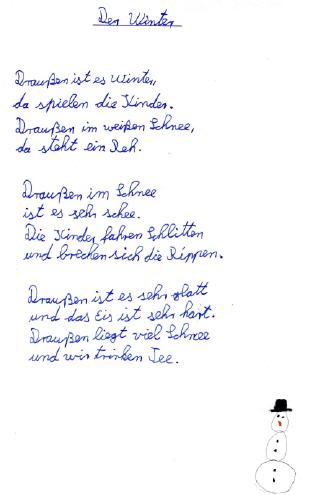 Der Winter
Draußen ist es Winter,
da spielen die Kinder.
Draußen im weißen Schnee,
da steht ein Reh.
Draußen im Schnee
ist es sehr schee.
Die Kinder fahren Schlitten
und brechen sich die Rippen.
Draußen ist es sehr glatt
und das Eis ist sehr hart.
Draußen liegt viel Schnee
und wir trinken Tee.